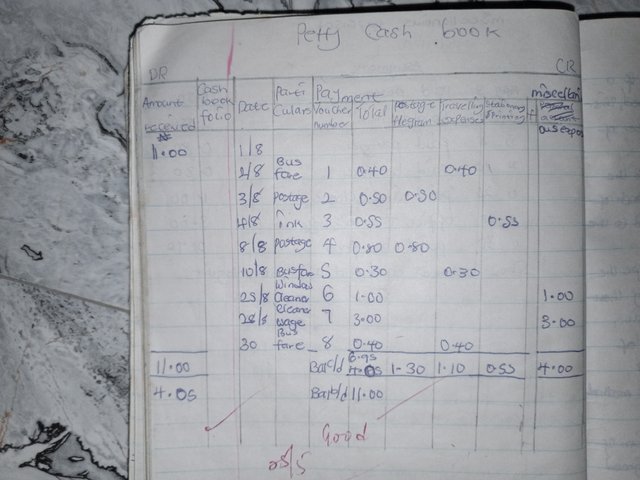 Petty Cash book
DR CR
Amount received Cash book folio Date Parti Culars Payment Voucher number Total Postage Travelling expenses Stationery miscellan
₦
11.00 1/8
2/8 Bus fare 1 0.40 0.40
3/8 postage 2 0.50 0.50
4/8 ink 3 0.55 0.55
8/8 postage 4 0.80 0.80
10/8 Busfare 5 0.30 0.30
25/8 Window Cleaner 6 1.00 1.00
28/8 Cleaner wage 7 3.00 3.00
30 Bus fare 8 0.40 0.40
6.95
11.00 Bal c/d 4.05 1.30 1.10 0.55 4.00
4.05 Bal b/d 11.00
Good
05/5